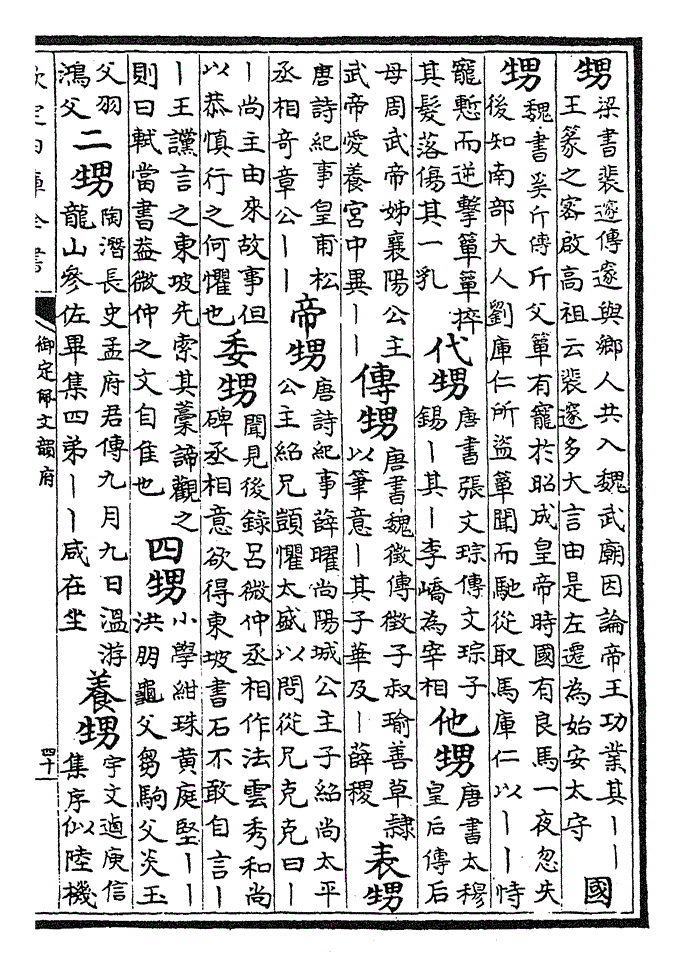 甥梁書裴邃傳邃與鄉人共入魏武廟因論帝王功業其——
王篆之密啟高祖云裴邃多大言由是左遷為始安太守
國
甥魏書奚斤傳斤父簞有寵於昭成皇帝時國有良馬一夜忽失
後知南部大人劉庫仁所盜簞聞而馳從取馬庫仁以——恃
寵慙而逆擊簞簞捽
其髮落傷其一乳
代甥唐書張文琮傳文琮子
錫—其—李嶠為宰相
他甥唐書太穆
皇后傳后
母周武帝姊襄陽公主
武帝愛養宮中異——
傳甥唐書魏徵傳徵子叔瑜善草隷
以筆意—其子華及—薛稷
表甥
唐詩紀事皇甫松
丞相奇章公——
帝甥唐詩紀事薛曜尚陽城公主子紹尚太平
公主紹兄顗懼太盛以問從兄克克曰—
—尚主由來故事但
以恭慎行之何懼也
委甥聞見後錄呂微仲丞相作法雲秀和尚
碑丞相意欲得東坡書石不敢自言—
—王讜言之東坡先索其藳諦觀之
則曰軾當書益微仲之文自佳也
四甥小學紺珠黄庭堅——
洪朋龜父芻駒父炎玉
父羽
鴻父
二甥陶潛長史孟府君傳九月九日温游
龍山參佐畢集四弟——咸在坐
養甥宇文逌庾信
集序似陸機
欽定四庫全書
御定佩文韻府
四十一